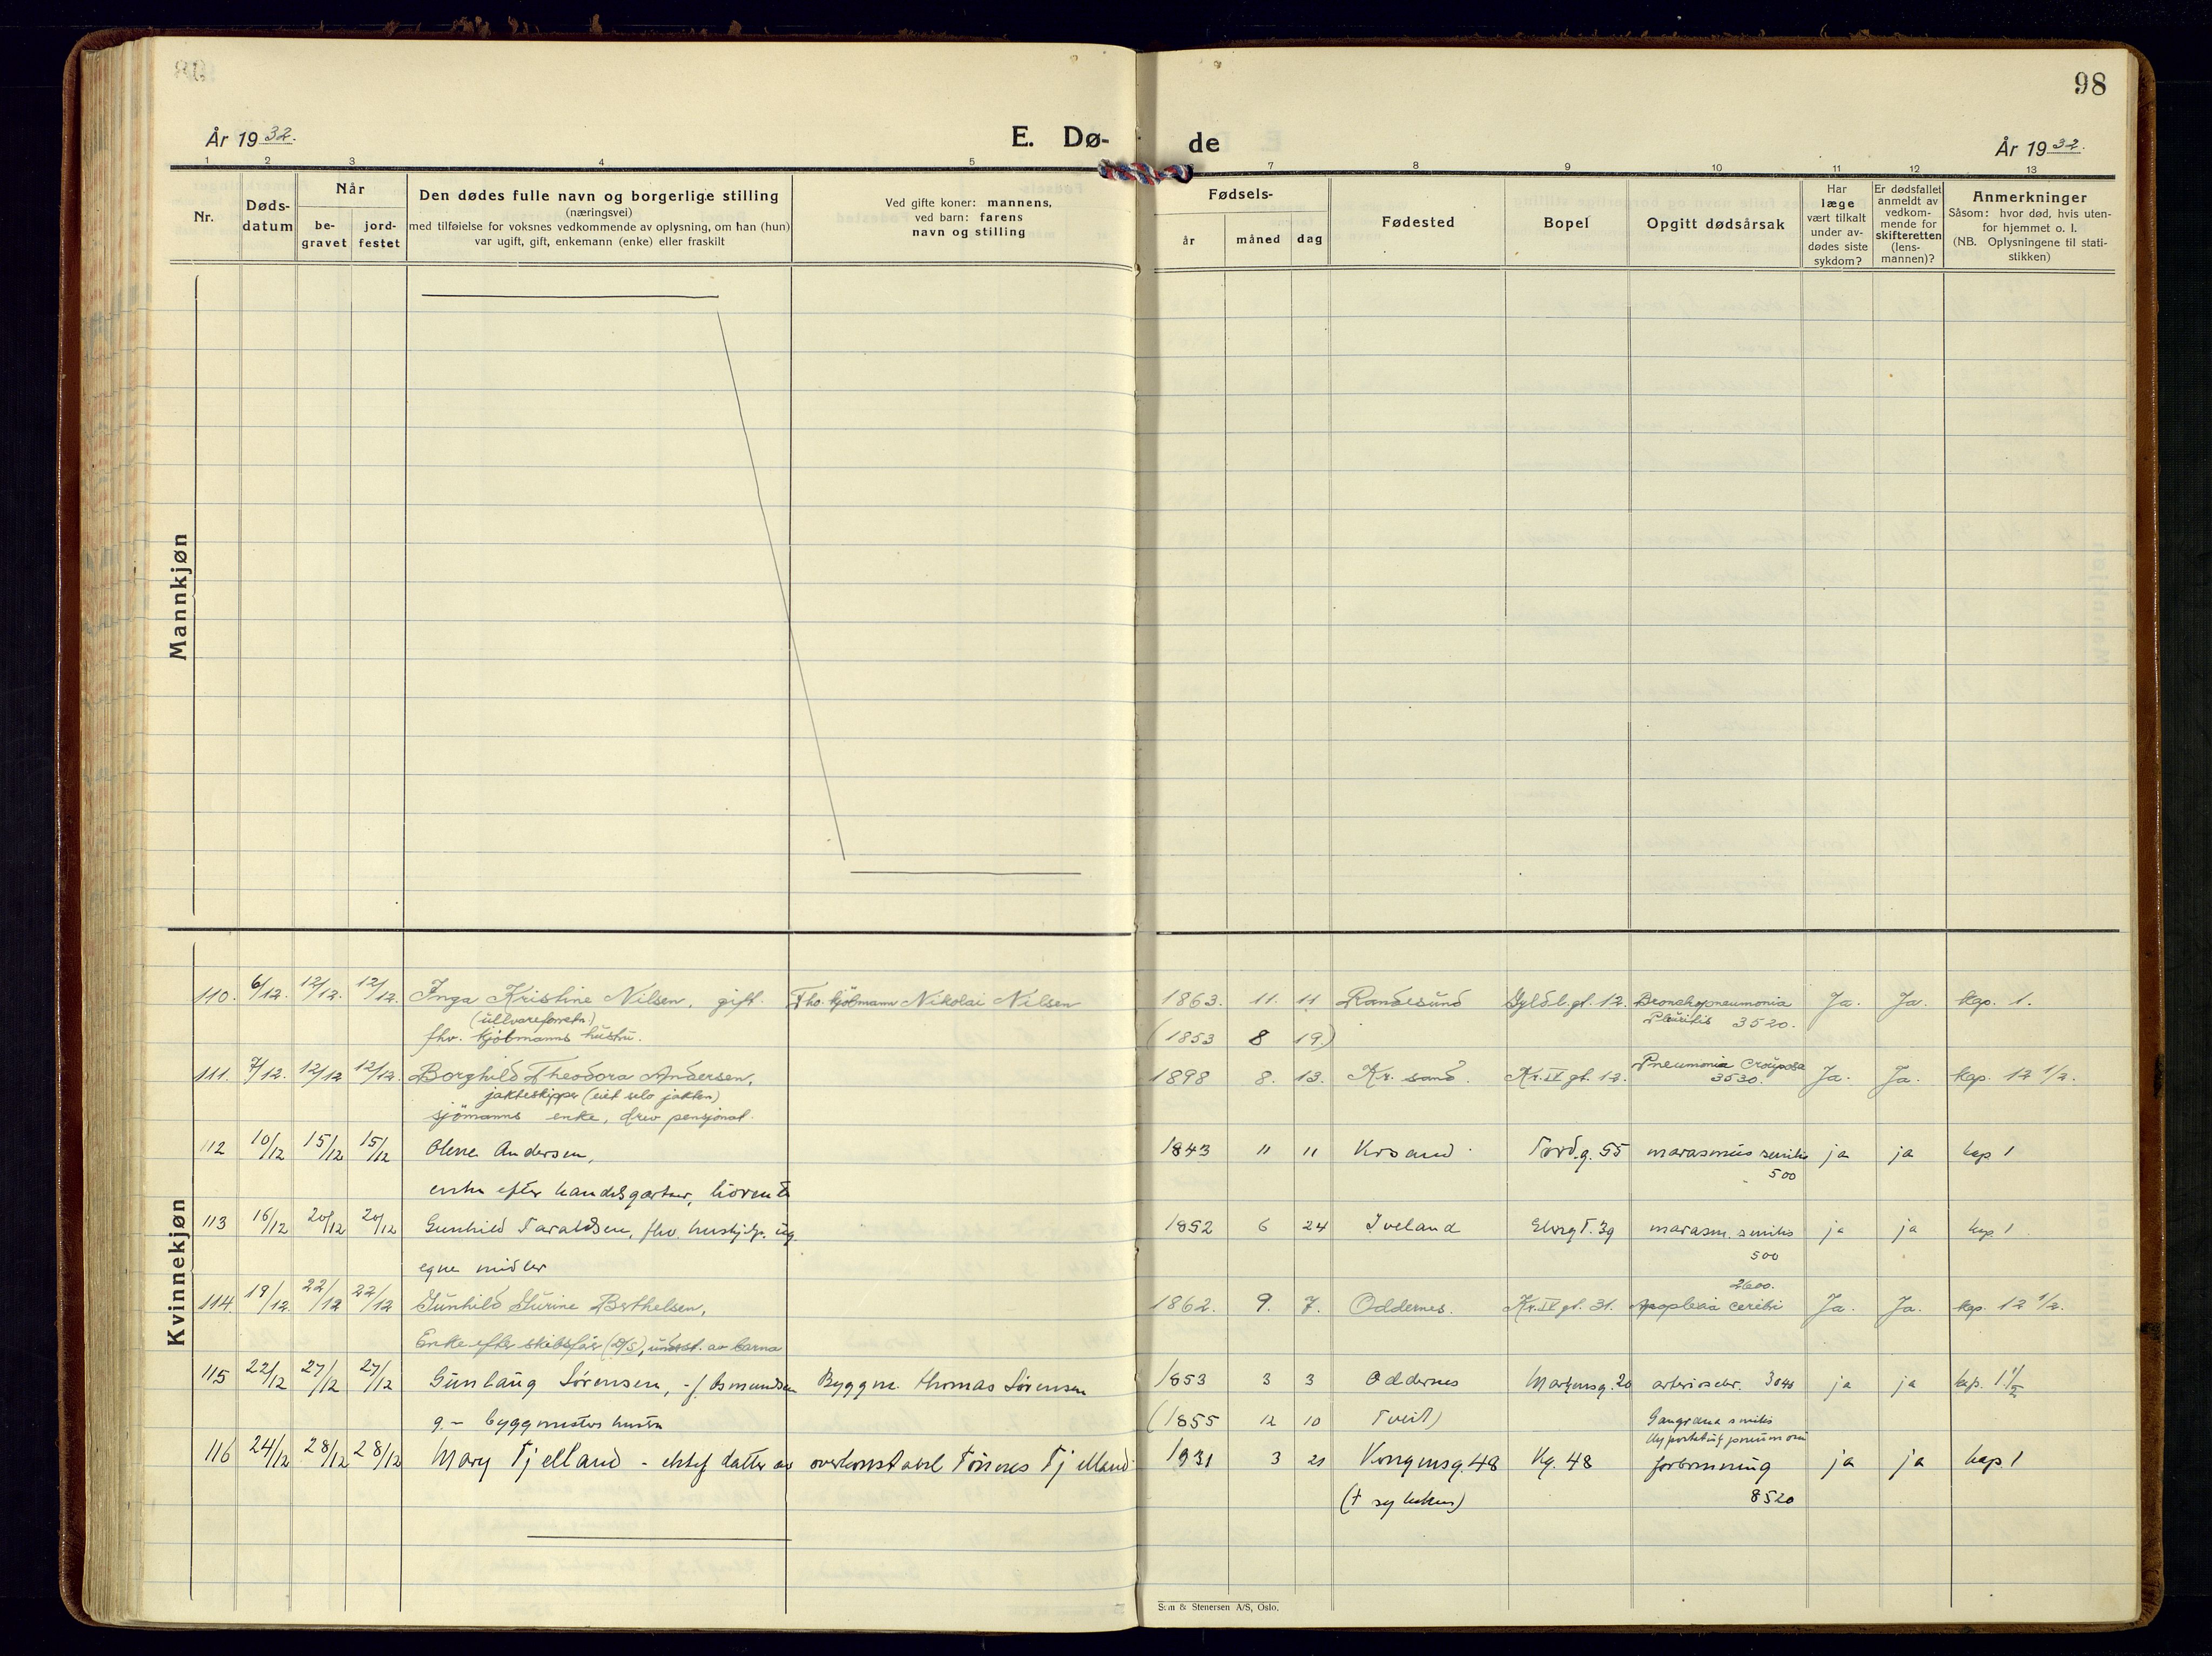 98
År 1932.
E. Dø-
de
År 1932.
1 2 3 4 5 7 8 9 10 11 12 13
Nr.
Døds-
datum
Når
be-
gravet
jord-
festet
Den dødes fulle navn og borgerlige stilling
(næringsvei)
med tilføielse for voksnes vedkommende av oplysning, om han (hun)
var ugift, gift, enkemann (enke) eller fraskilt
Ved gifte koner: mannens,
ved barn: farens
navn og stilling
Fødsels-
år
måned
dag
Fødested
Bopel
Opgitt dødsårsak
Har
læge
vært tilkalt
under av-
dødes siste
sykdom?
Er dødsfallet
anmeldt av
vedkom-
mende for
skifteretten
(lens-
mannen)?
Anmerkninger
Såsom: hvor død, hvis uten-
for hjemmet o. l.
(NB. Oplysningene til stati-
stikken)
Mannkjøn
Kvinnekjøn
110. 6/12. 12/12. 12/12. Inga Kristine Nilsen, gift. Fho. kjöbmann Nikolai Nilsen 1863. 11. 11 Randesund Gyldl. gt. 12. Bronchopneumonia Ja. Ja. kap. 1.
(ullvareforretn.) Pleuritis 3520.
fhv. kjöbmanns hustru. (1853 8 19.)
111. 7/12. 12/12 12/12. Borghild Theodora Andersen, 1898 8. 13. Kr. sand. Kr. IV gt. 12. Pneumonia crouposa Ja. Ja. kap. 12 1/2.
3530.
jakteskipper (eiet selv jakten)
sjömanns enke, drev pensjonat.
112 10/12 15/12 15/12 Olene Andersen, 1843 11 11 Krsand Tord.g. 55 marasmus senilis ja ja kap 1
500
enke efter handelsgartner,
113 16/12 20/12 20/12 Gunhild Taraldsen, fhv. hushjelp. ug. 1852 6 24 Iveland Elvegt. 39 marasm. senilis ja ja kap. 1
500
egne midler
2600.
114. 19/12. 22/12 22/12 Gunhild Gurine Berthelsen, 1862. 9. 7. Oddernes. Kr. IV gt. 31. Apoplexia cerebri Ja. Ja. kap. 12 1/2.
Enke efter skibsfør (D/S), underst. av barna
115 22/12 27/12 27/12 Gunlaug Sörensen, - f. Osmundsen Byggm. Thomas Sörensen 1853 3 3 Oddernes Markensg. 20 arterioscler. 3040 ja ja kap. 1 1/2
g - byggmesters hustru (1855 12 10 Tveit) Gangræna senilis
116 24/12 28/12 28/12 Mary Tjelland - ektef datter av overkonstabel Tönnes Tjelland 1931 3 21 Kongensg. 48 Kg. 48 forbrenning ja ja kap 1
8520
Sem & Stenersen A/S, Oslo.